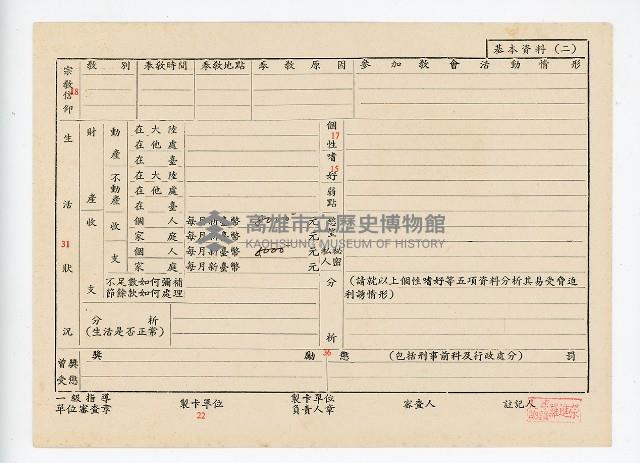 基本資料(二)
宗教信仰
18
教別 奉教時間 奉教地點 奉教原因 參加教會活動情形
生活狀況
31
財產
動產
在大陸
在他處
在臺
不動產
在大陸
在他處
在臺
收支
收
個人 每月新臺幣 8000 元
家庭 每月新臺幣 元
支
個人 每月新臺幣 8000 元
家庭 每月新臺幣 元
不足數如何彌補
節餘款如何處理
分析
(生活是否正常)
個性嗜好
17
15
弱點
慾望
私人秘密
分析
(請就以上個性嗜好等五項資料分析其易受脅迫
利誘情形)
36
曾受獎懲
獎勵 懲(包括刑事前科及行政處分)罰
一級指導
單位審查章
製卡單位
22
製卡單位
負責人章
審查人
註記人
高雄市立歷史博物館
KAOHSIUNG MUSEUM OF HISTORY